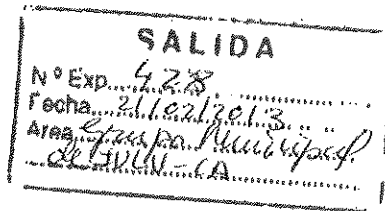 SALIDA
Nº Exp. 428
Fecha 21/02/2013
Area Grupo Municipal
de IULV-CA